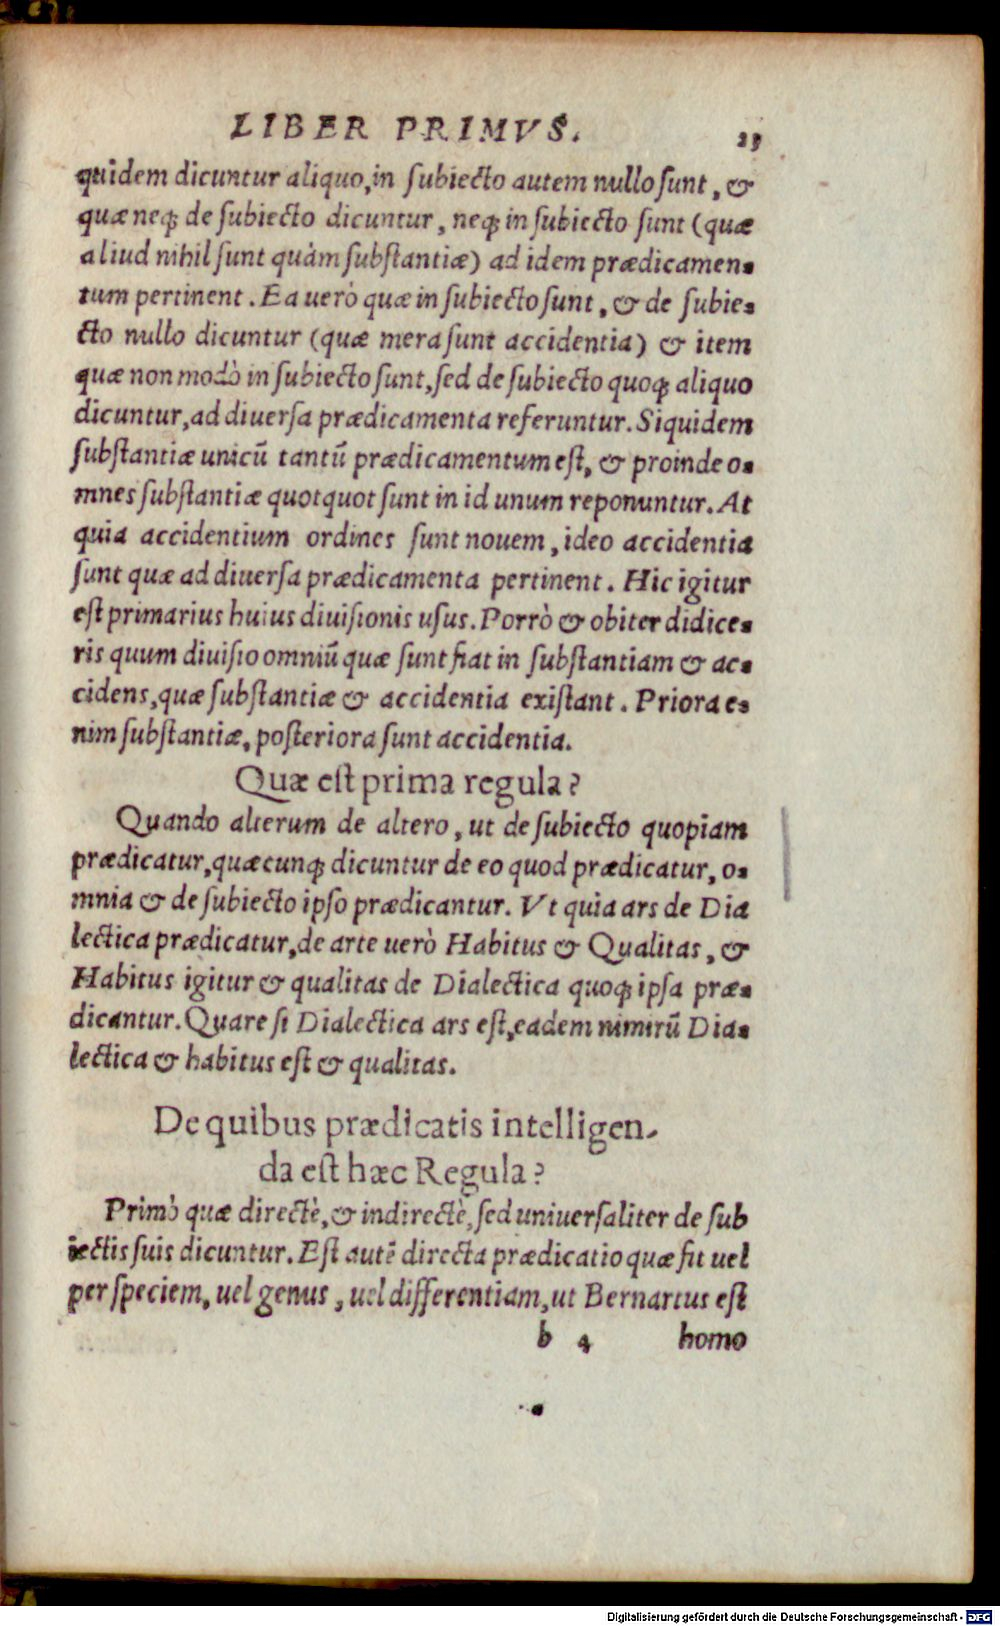 LIBER PRIMVS. 23
quidem dicuntur aliquo, in subiecto autem nullo sunt, &
quæ neq; de subiecto dicuntur, neq; in subiecto sunt (quæ
aliud nihil sunt quàm substantiæ) ad idem prædicamen-
tum pertinent. Ea uerò quæ in subiecto sunt, & de subie-
cto nullo dicuntur (quæ mera sunt accidentia) & item
quæ non modò in subiecto sunt, sed de subiecto quoq; aliquo
dicuntur, ad diuersa prædicamenta referuntur. Siquidem
substantiæ unicū tantū prædicamentum est, & proinde o-
mnes substantiæ quotquot sunt in id unum reponuntur. At
quia accidentium ordines sunt nouem, ideo accidentia
sunt quæ ad diuersa prædicamenta pertinent. Hic igitur
est primarius huius diuisionis usus. Porrò & obiter didice-
ris quum diuisio omniū quæ sunt fiat in substantiam & ac-
cidens, quæ substantiæ & accidentia existant. Priora e-
nim substantiæ, posteriora sunt accidentia.
Quæ est prima regula?
Quando alterum de altero, ut de subiecto quopiam
prædicatur, quæcunq; dicuntur de eo quod prædicatur, o-
mnia & de subiecto ipso prædicantur. Vt quia ars de Dia
lectica prædicatur, de arte uerò Habitus & Qualitas, &
Habitus igitur & qualitas de Dialectica quoq; ipsa præ-
dicantur. Quare si Dialectica ars est, eadem nimirū Dia-
lectica & habitus est & qualitas.
De quibus prædicatis intelligen-
da est hæc Regula?
Primò quæ directè, & indirectè, sed uniuersaliter de sub
iectis suis dicuntur. Est autē directa prædicatio quæ fit uel
per speciem, uel genus, uel differentiam, ut Bernartus est
b 4 homo
Digitalisierung gefördert durch die Deutsche Forschungsgemeinschaft - DFG